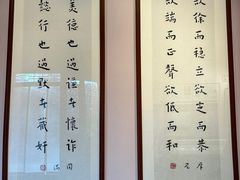 欲徐而穩立欲定而恭
欲端而正聲欲低而和
美德也過謙者懷詐
懿行也過默者藏奸